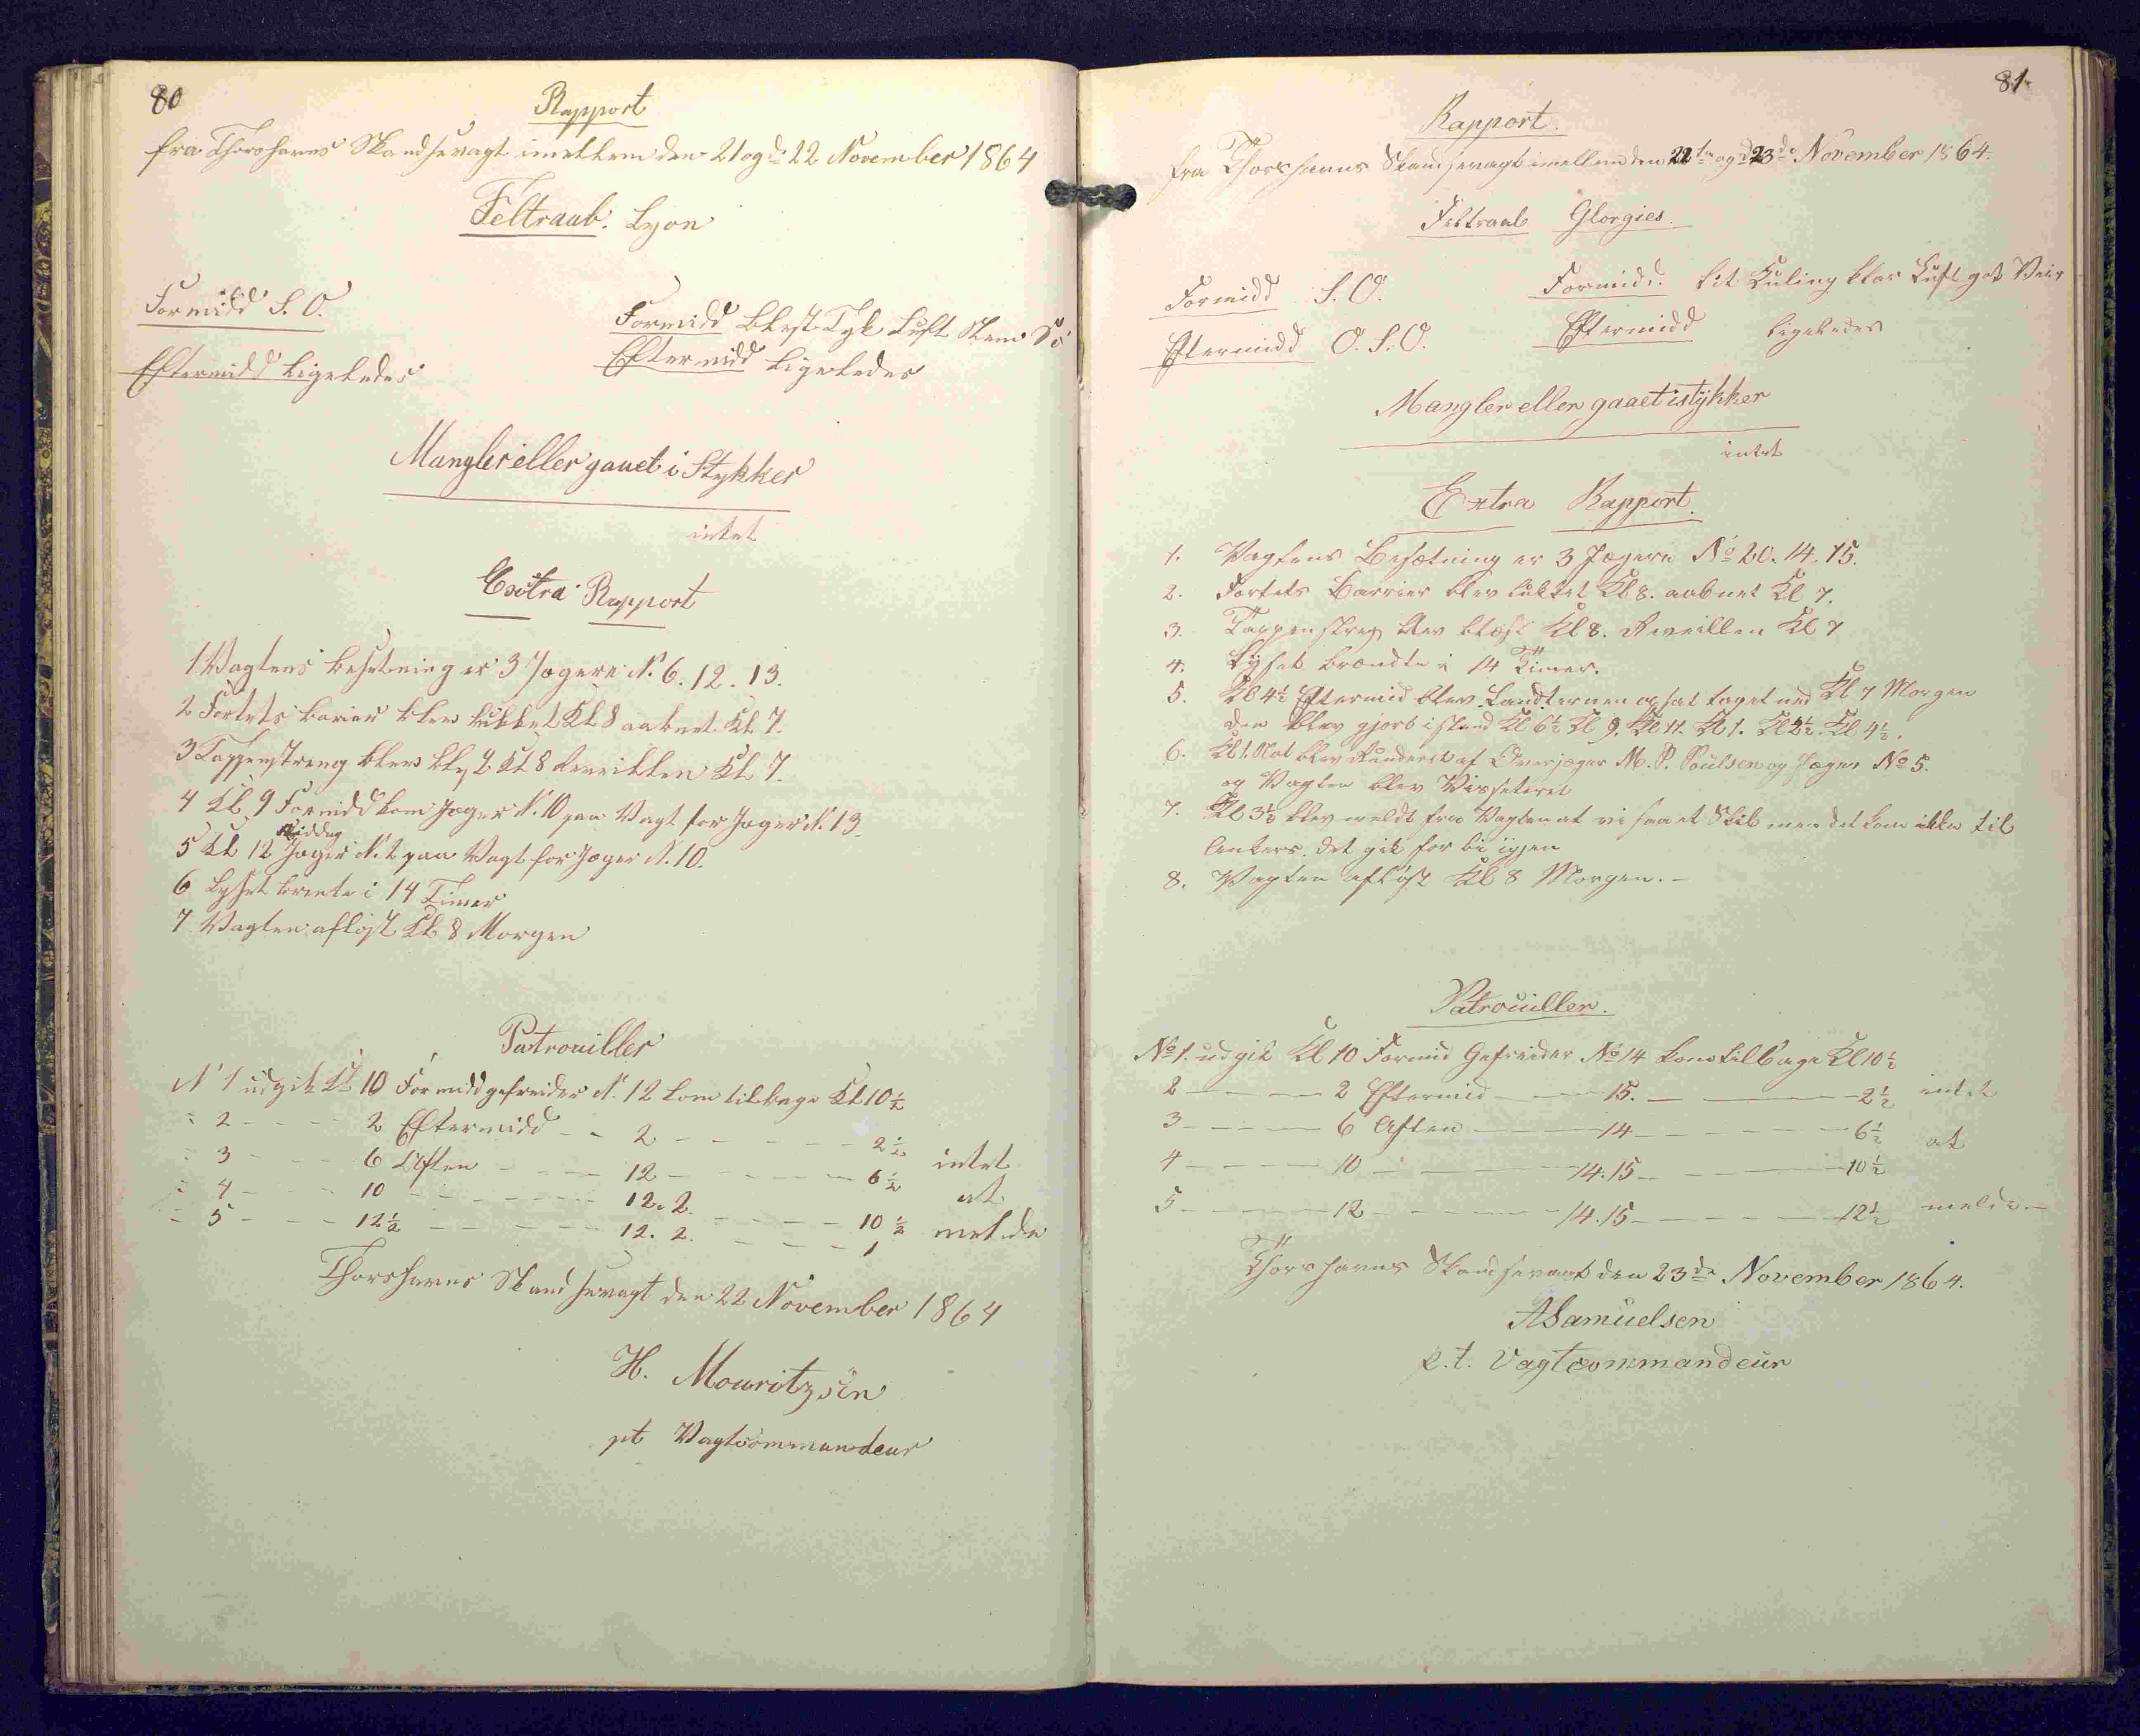 80
Rapport
fra Thorshavns Skandsevagt imellem den 21 og d: 22 November 1864
Feltraab. Lyon
Formidd S. O.
Formidd blest Tyk Luft
Eftermidd ligeledes
Eftermidd ligeledes
Mangler eller gaaet i Stykker
intet
Exstra Rapport
1 Vagtens besetning er 3 Jægere N. 6. 12. 13.
2 Fortets barier blev lukket Kl 8 aabnet Kl. 7.
3 Tappenstreng blev blest Kl 8 Reveillen Kl 7.
4 Kl 9 Formidd kom Jæger N. 10 paa Vagt for Jæger N. 13
Middag
5 Kl 12 Jæger N. 2 paa Vagt for Jæger N. 10.
6 Lyset brente i 14 Timer
7 Vagten afløst Kl 8 Morgen
Patrouiller
N 1 udgik Kl 10 Formidd gefreider N. 12 kom tilbage Kl 10 ½
: 2 - - - - 2 Eftermidd - - 2 - - - - - - 2 ½
: 3 - - - 6 Aften - - - 12 - - - - - 6 ½ intet
: 4 - - - 10 - - - - - - 12. 2. - - - - 10 ½ at
: 5 - - - 12 ½ - - - - - - 12. 2. - - - 1 melde
Thorshavns Skandsevagt den 22 November 1864
H. Mouritzsen
pt Vagtcommandeur
81.
Rapport.
fra Thorshavns Skandsevagt imellem den 22de og d 23de November 1864.
Feltraab Glorgies.
Formidd S. O.
Formidd. lit Kuling klar Luft got Veir
Eftermidd O. S. O.
Eftermidd ligeledes
Mangler eller gaaet istykker
intet
Extra Rapport.
1. Vagtens Besætning er 3 Jægere No 20. 14. 15.
2. Fortets Barrier blev lukket Kl 8. aabnet Kl 7.
3. Tappenstreg blev blæst Kl 8. Reveillen Kl 7
4. Lyset brændte i 14 Timer.
5. Kl 4½ Eftermid blev Landternen opsat taget ned Kl 7 Morgen
den blev gjort istand Kl 6½ Kl 9. Kl 11. Kl 1. Kl 2½. Kl 4½.
6. Kl 1. Nat blev Runderet af Overjæger M. P. Poulsen og Jæger No 5.
og Vagten blev Visseteret
7. Kl 3½ blev meldt fra Vagten at vi saa et Skib men det kom ikke til
Ankers. det gik for bi igjen
8. Vagten afløst Kl 8 Morgen. -
Patrouiller.
No 1. udgik Kl 10 Formid Gefreider No 14 kom tilbage Kl 10 ½
2 - - - 2 Eftermid - - 15. - - - 2 ½ intet
3 - - - - 6 Aften - - - 14 - - - - - 6 ½ at
4 - - - - 10 - - - 14. 15 - - - - 10 ½
5 - - - - 12 - - - - 14. 15 - - - - 12 ½ melde. -
Thorshavns Skandsevagt den 23de November 1864.
A Samuelsen
p. t. Vagtcommandeur